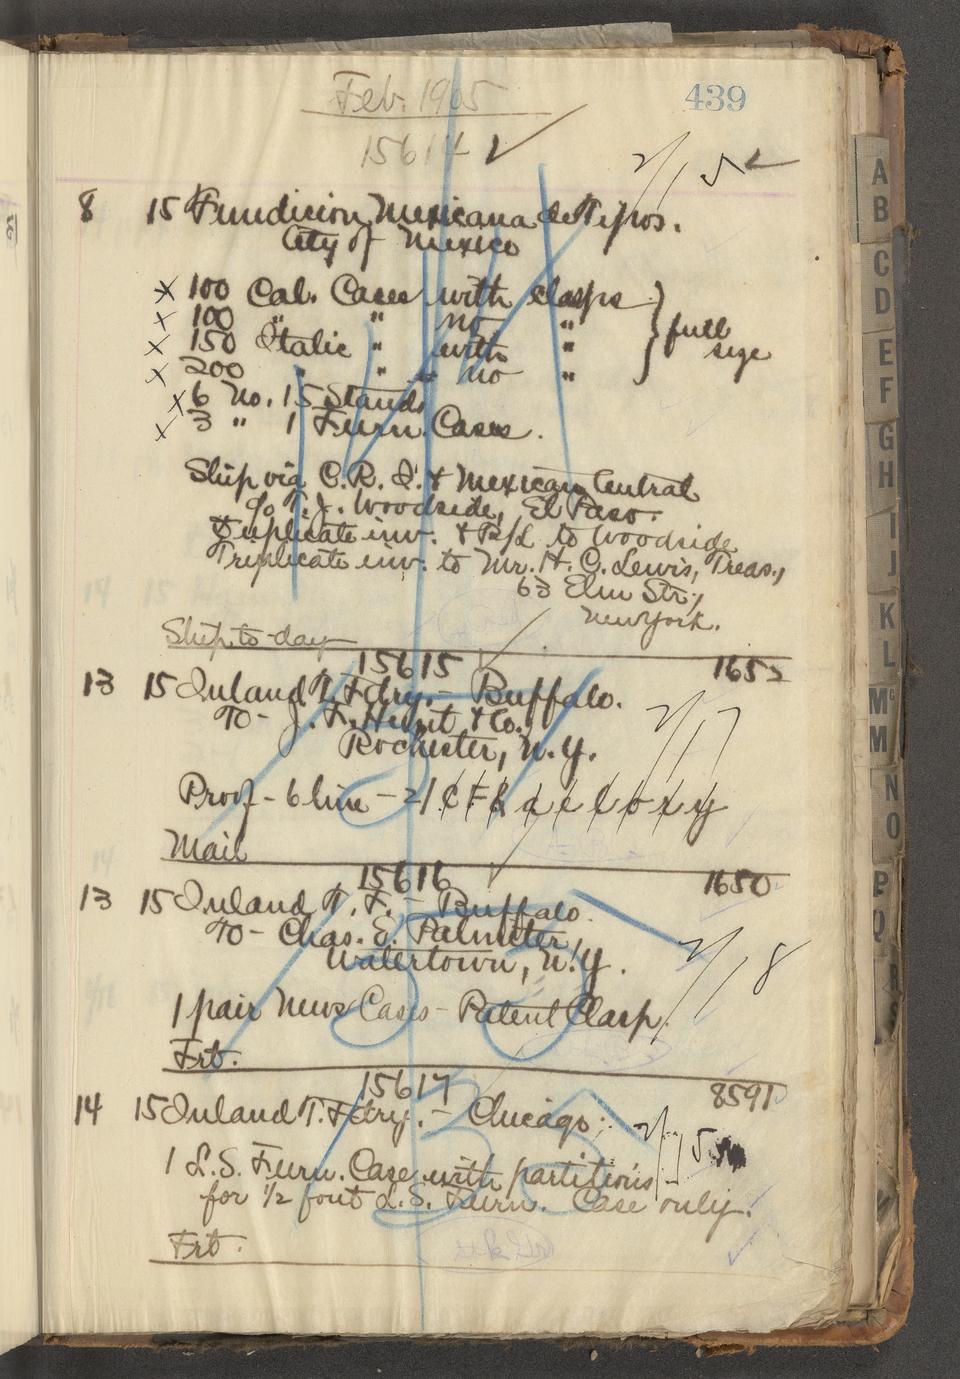 Feb. 1905
439
15614 ✓
2/15
8 15 Fundicion Mexicana de Tipos.
City of Mexico
x 100 Cal. Cases with clasps
x 100 " " no "
x 150 Italic " with "
x 200 " " " no "
full size
x 6 No. 15 Stands
x 3 " 1 Furn. Cases.
Ship via C.R.I. & Mexican Central
c/o T.J. Woodside, El Paso.
Duplicate inv. & B/L to Woodside
Triplicate inv. to Mr. H.C. Lewis, Treas.,
63 Elm Str.,
New York.
Ship to-day
15615 1652
13 15 Inland T. Fdry. - Buffalo.
To - J. F. & Co.,
Rochester, N.Y.
2/17
Proof - 6 line - 21 C F & a e l o x y
Mail
15616 1650
13 15 Inland T. F. - Buffalo.
To - Chas. E. Palmiter,
Watertown, N.Y.
2/18
1 pair News Cases - Patent Clasp.
Frt.
15617 8591
14 15 Inland T. Fdry. - Chicago.
2/15
1 L.S. Furn. Case with partitions
for 1/2 font L.S. Furn. Case only.
Frt.
A
B
C
D
E
F
G
H
I
J
K
L
Mc
M
N
O
P
Q
R
S